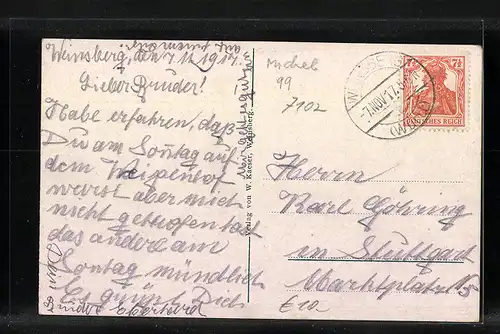 Weinsberg, den 7.11.1917.
Lieber Bruder!
Habe erfahren, daß
Du am Sontag auf
dem
warst aber mich
nicht getroffen hast
das andere am
Sontag mündlich
Es grüsst Dich
Dein
Bruder
Verlag von W. Kaeser, Weinsberg.
Michel
99
7102
WEINSBERG
-7.NOV 17
7½
DEUTSCHES REICH
Herrn
Karl Göhring
in Stuttgart
Marktplatz 15
€ 10